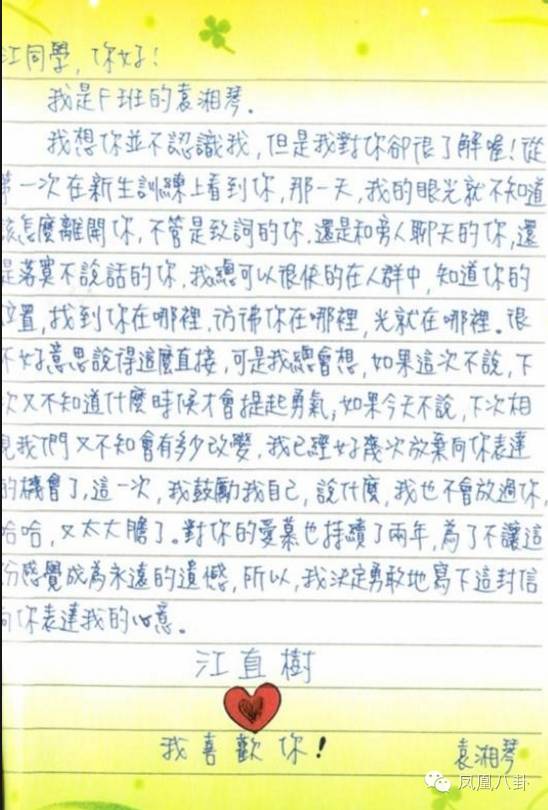 江同學,你好!
我是F班的袁湘琴.
我想你並不認識我,但是我對你卻很了解喔!從
第一次在新生訓練上看到你,那一天,我的眼光就不知道
該怎麼離開你,不管是致詞的你,還是和旁人聊天的你,還
是落寞不說話的你,我總可以很快的在人群中,知道你的
位置,找到你在哪裡,彷彿你在哪裡,光就在哪裡。很
不好意思說得這麼直接,可是我總會想,如果這次不說,下
次又不知道什麼時候才會提起勇氣,如果今天不說,下次相
見我們又不知會有多少改變,我已經好幾次放棄向你表達
的機會了,這一次,我鼓勵我自己,說什麼,我也不會放過你,
哈哈,又太大膽了。對你的愛慕也持續了兩年,為了不讓這
份感覺成為永遠的遺憾,所以,我決定勇敢地寫下這封信
向你表達我的心意。
江直樹
我喜歡你!
袁湘琴
凤凰八卦